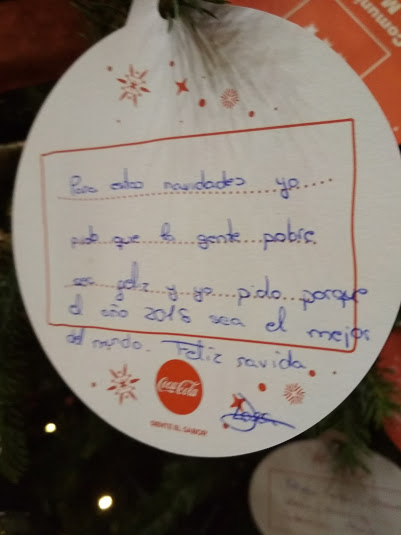 Para estas navidades yo
pido que la gente pobre
sea feliz y yo pido porque
el año 2018 sea el mejor
del mundo. Feliz navida
Coca-Cola
SIENTE EL SABOR
Comuni
M